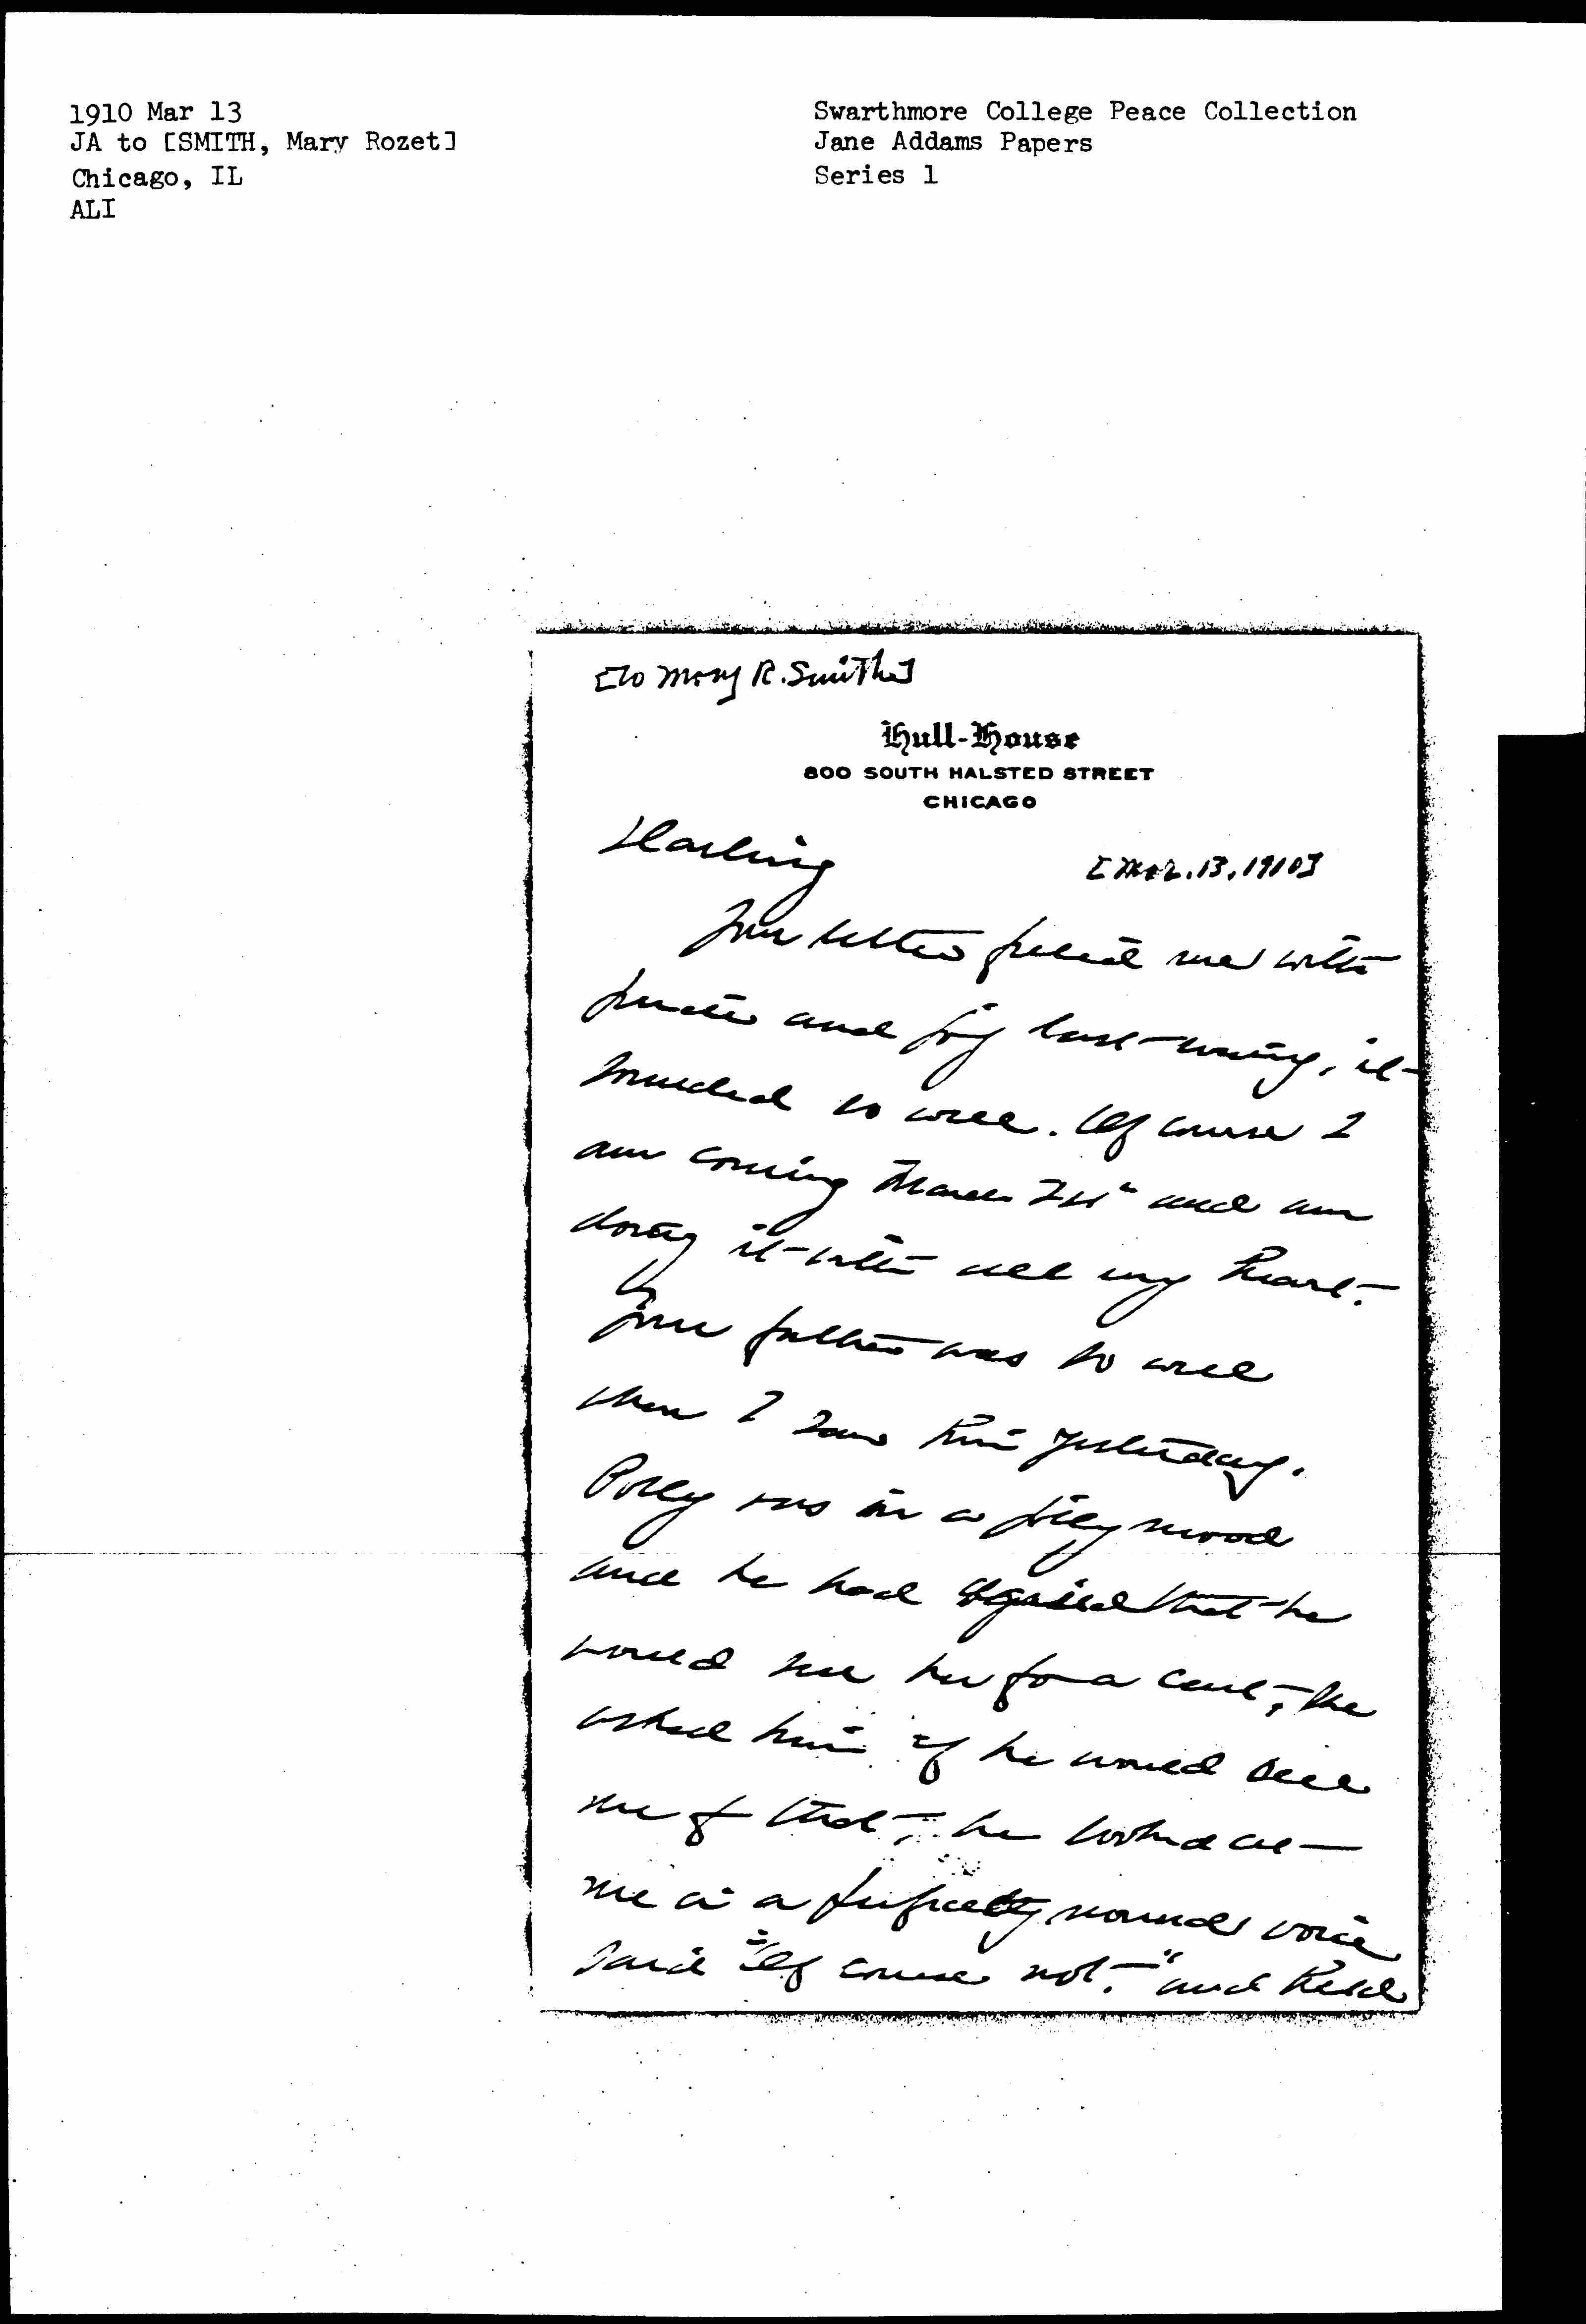 1910 Mar 13
JA to [SMITH, Mary Rozet]
Chicago, IL
ALI
Swarthmore College Peace Collection
Jane Addams Papers
Series 1
[To Mary R. Smith]
Hull-House
800 SOUTH HALSTED STREET
CHICAGO
Darling
[Mar. 13, 1910]
Your letter filled me with
and joy last evening, it
sounded so well. Of course I
am coming March and am
doing it with all my heart.
Your father was so well
when I saw him yesterday.
Polly was in a jolly mood
and he had agreed that he
would sell her for a cent, she
asked him if he would sell
me for that, he looked at
me in a perfectly normal voice
said "Of course not." and held